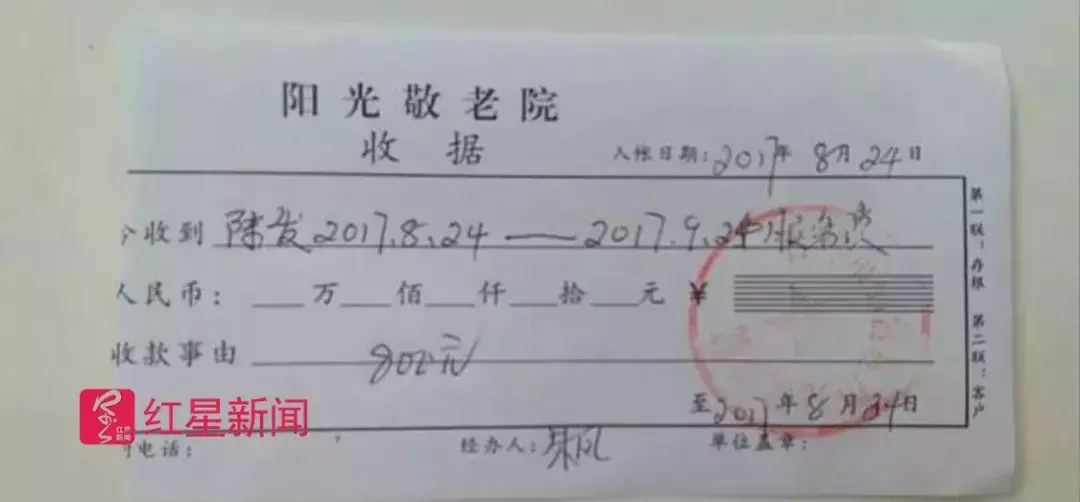 阳光敬老院
收据
入帐日期:2017年8月24日
今收到 陈发2017.8.24——2017.9.24服务费
人民币: 万 佰 仟 拾 元 ¥
收款事由 800元
至2017年8月24日
电话: 经办人: 单位盖章:
第一联:存根 第二联:客户
红星新闻
红星新闻